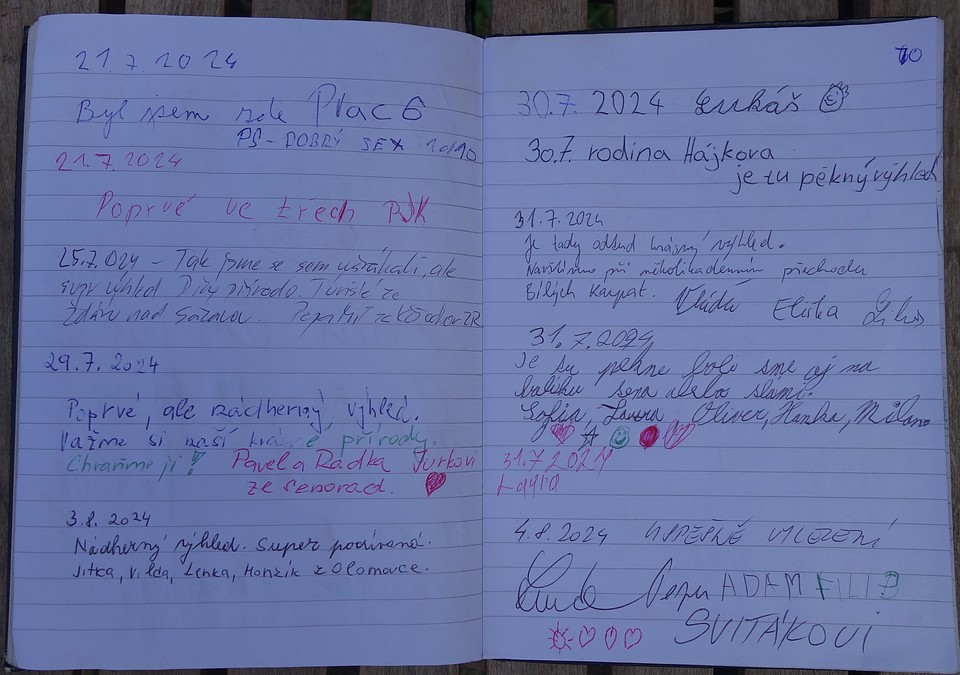 21.7.2024
Byl jsem zde Ptac6
PS- DOBRÝ SEX 10/10
21.7.2024
Poprvé ve třech
25.7.024 - Tak jsme se sem uškrábali, ale
supr výhled Díky přírodo. Turisté ze
Ždáru nad Sázavou.
29.7. 2024
Poprvé, ale nádherný výhled.
Važme si naší krásné přírody.
Chraňme ji! Pavel a Radka Jurkovi
ze Senorad.
3.8. 2024
Nádherný výhled. Super podívaná.
Jitka, Vilda, Lenka, Honzík z Olomouce.
10
30.7. 2024 Lukáš
30.7. rodina Hájkova
je tu pěkný výhled
31.7.2024
Je tady odsud krásný výhled.
Navštíveno při několikadenním přechodu
Bílých Karpat. Vláďa Eliška
31.7.2024
Je su pekne boli sme aj na
baliku sena alebo slámi.
Sofia, Laura Oliver, Hanka, Milan
31.7 2024
4.8.2024 ÚSPĚŠNĚ VYLEZENÍ
ADAM FILIP
SVITÁKOVI